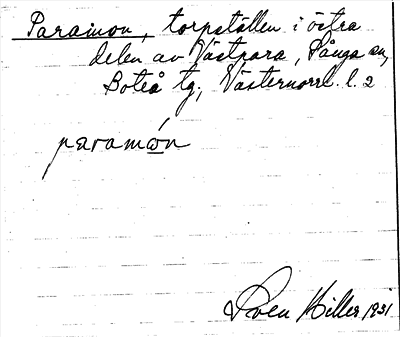 Paramon, torpställen i östra
delen av Västpara, Sånga sn,
Boteå tg, Västernorrl. l. 2
paramón
Sven Hiller 1931